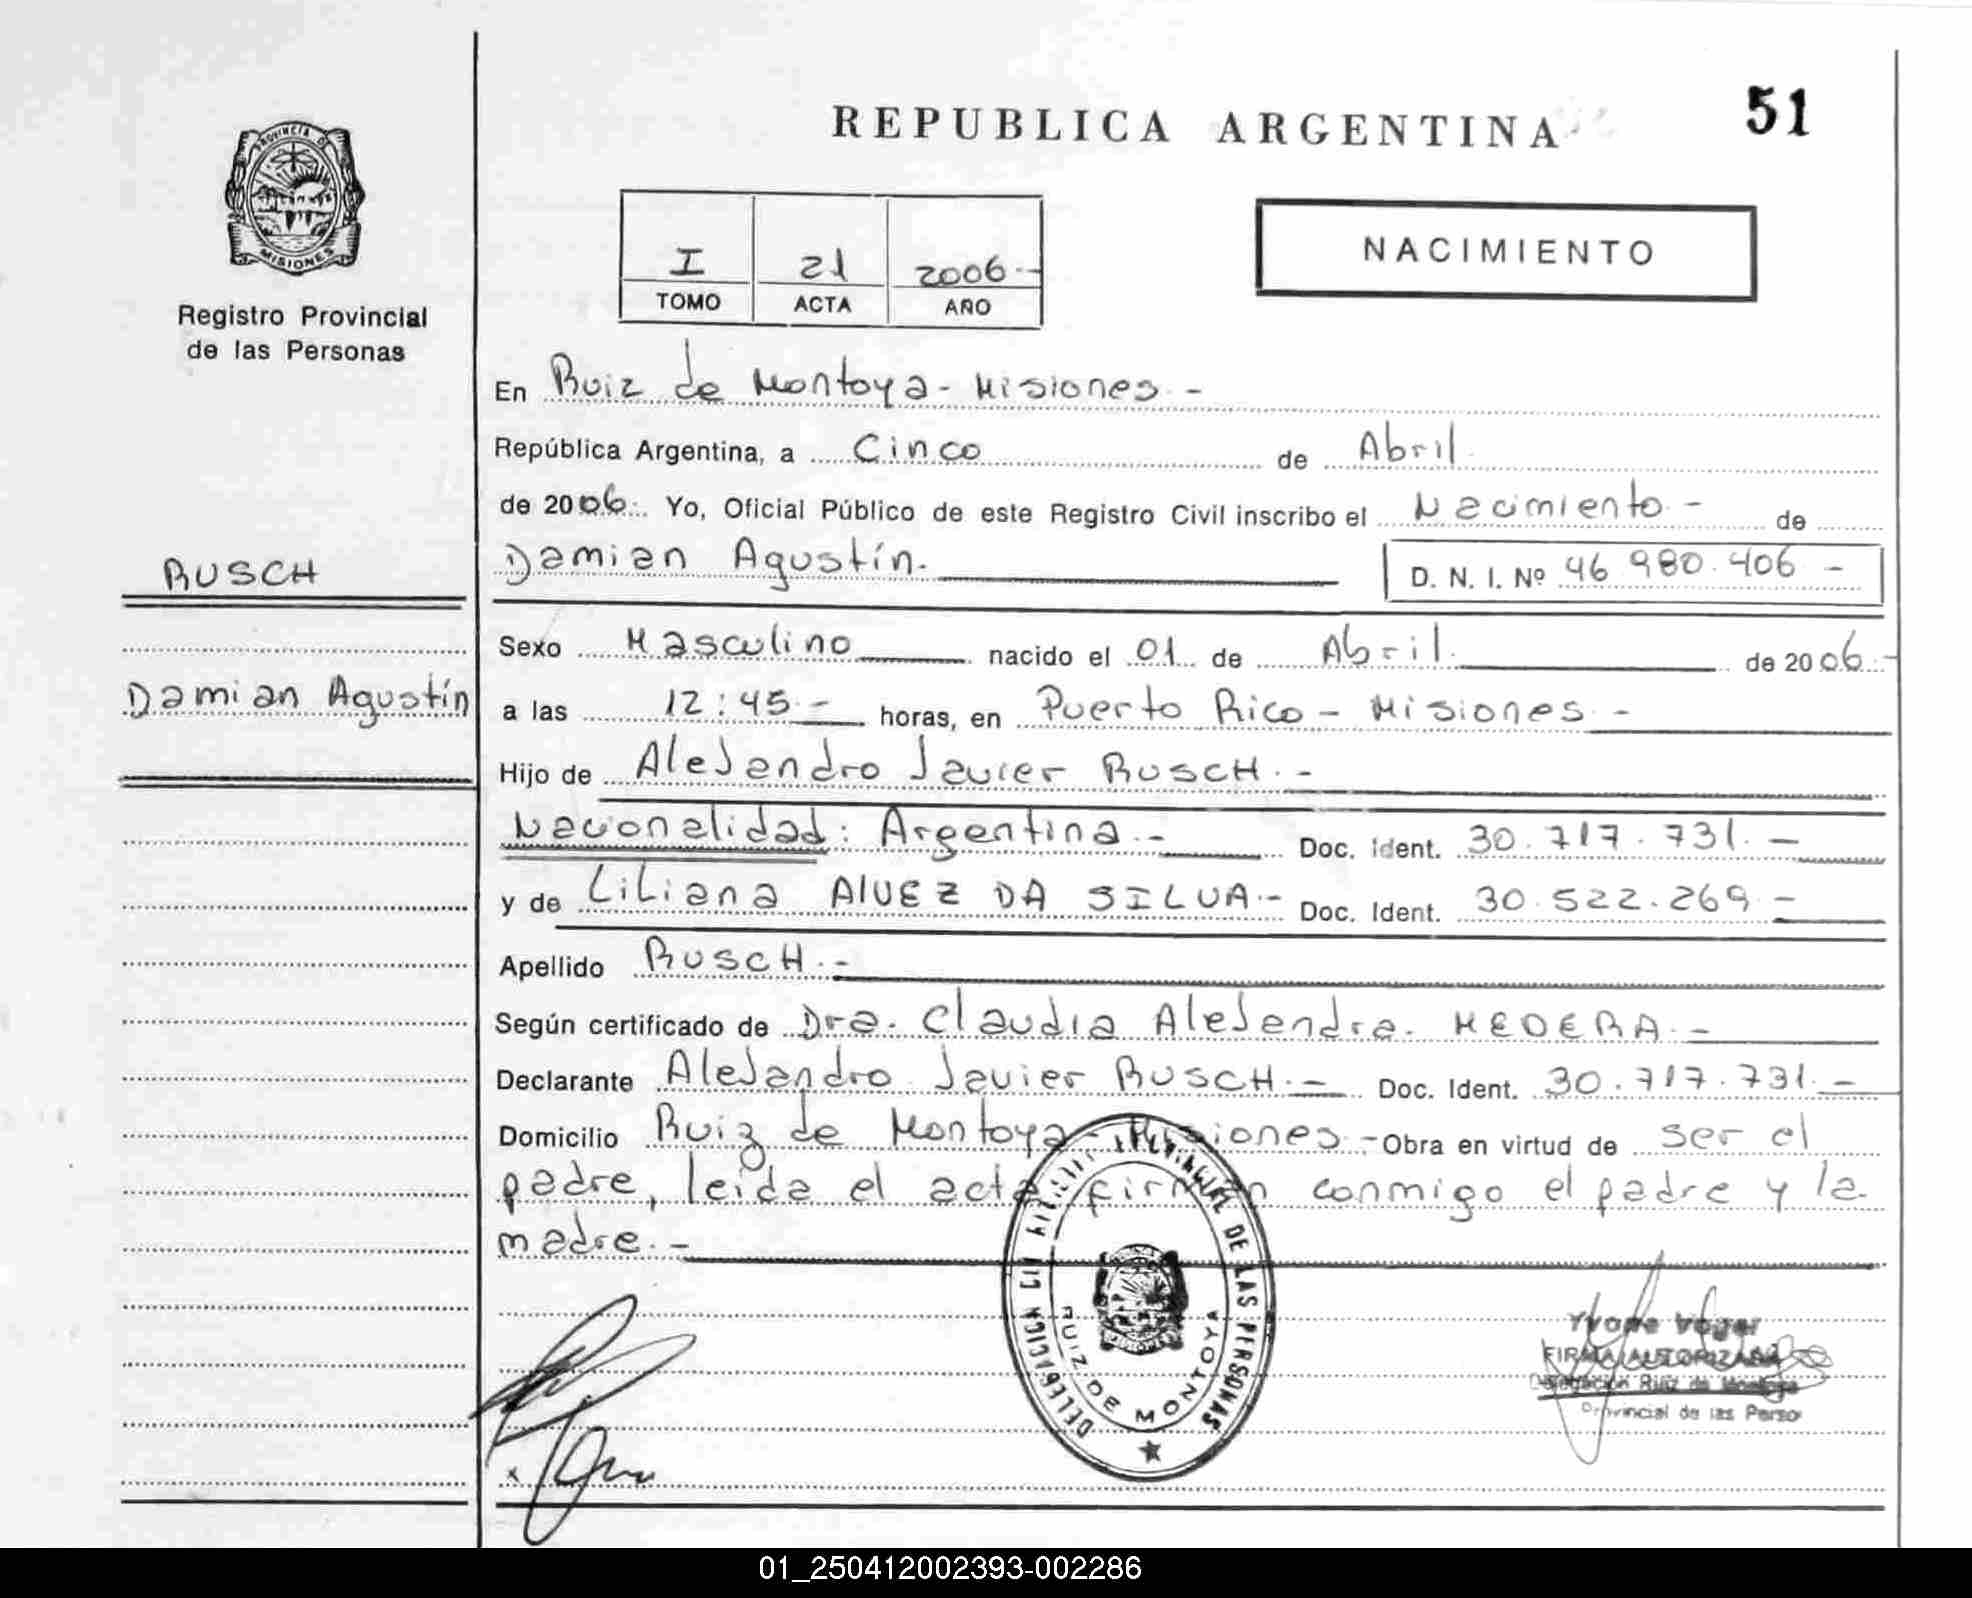 REPUBLICA ARGENTINA
51
PROVINCIA DE
MISIONES
Registro Provincial
de las Personas
I 21 2006.-
TOMO ACTA AÑO
NACIMIENTO
En Ruiz de Montoya - Misiones.-
República Argentina, a Cinco de Abril
de 2006.- Yo, Oficial Público de este Registro Civil inscribo el Nacimiento.- de
Damian Agustín.
D. N. I. Nº 46 980.406 -
RUSCH
Damian Agustín
Sexo Masculino nacido el 01 de Abril de 2006.-
a las 12:45.- horas, en Puerto Rico - Misiones.-
Hijo de Alejandro Javier RUSCH.-
Nacionalidad: Argentina.- Doc. Ident. 30.717.731.-
y de Liliana AlVEZ DA SILVA.- Doc. Ident. 30.522.269.-
Apellido RUSCH.-
Según certificado de Dra. Claudia Alejandra MEDERA.-
Declarante Alejandro Javier RUSCH.- Doc. Ident. 30.717.731.-
Domicilio Ruiz de Montoya - Misiones.- Obra en virtud de ser el
padre, leida el acta firman conmigo el padre y la
madre.-
DELEGACION DEL REGISTRO PROVINCIAL DE LAS PERSONAS
RUIZ DE MONTOYA
FIRMA AUTORIZADA
Delegación Ruiz de Montoya
Provincial de las Perso
x
01_250412002393-002286